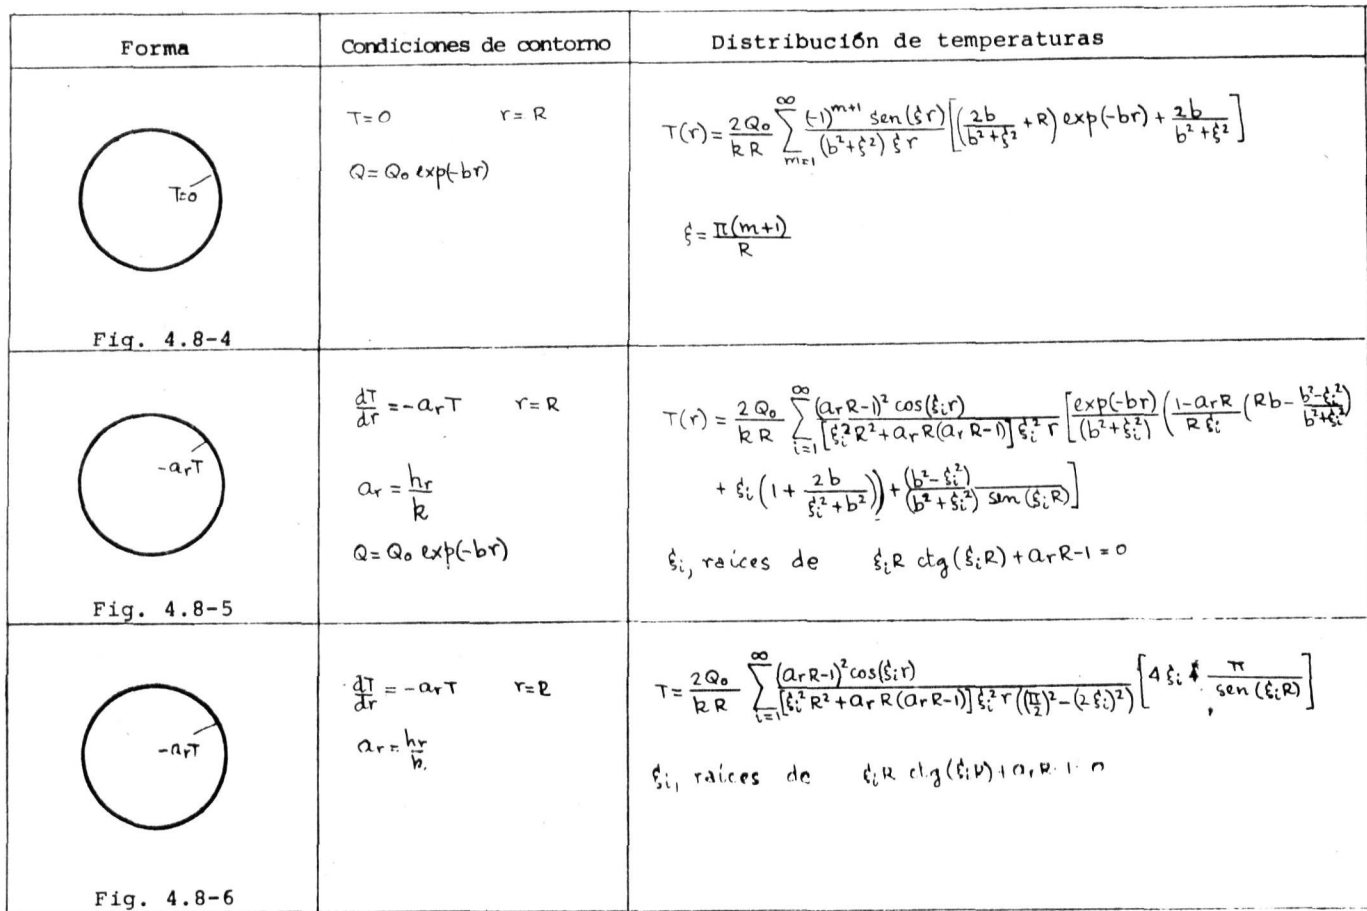 Forma
Condiciones de contorno
Distribución de temperaturas
T=0
Fig. 4.8-4
T=0 r=R
Q=Q₀ exp(-br)
T(r) = \frac{2Q₀}{kR} \sum_{m=1}^{∞} \frac{(-1)^{m+1} sen(ξr)}{(b²+ξ²) ξr} [(\frac{2b}{b²+ξ²} + R) exp(-br) + \frac{2b}{b²+ξ²}]
ξ = \frac{π(m+1)}{R}
-a_r T
Fig. 4.8-5
\frac{dT}{dr} = -a_r T r=R
a_r = \frac{h_r}{k}
Q=Q₀ exp(-br)
T(r) = \frac{2Q₀}{kR} \sum_{i=1}^{∞} \frac{(a_r R-1)² cos(ξ_i r)}{[ξ_i² R² + a_r R(a_r R-1)] ξ_i² r} [\frac{exp(-br)}{(b²+ξ_i²)} (\frac{1-a_r R}{R ξ_i} (Rb - \frac{b²-ξ_i²}{b²+ξ_i²})
+ ξ_i (1 + \frac{2b}{ξ_i²+b²})) + \frac{(b²-ξ_i²)}{(b²+ξ_i²)} \frac{}{sen(ξ_i R)}]
ξ_i, raíces de ξ_i R ctg(ξ_i R) + a_r R-1 = 0
-a_r T
Fig. 4.8-6
\frac{dT}{dr} = -a_r T r=R
a_r = \frac{h_r}{k}
T = \frac{2Q₀}{kR} \sum_{i=1}^{∞} \frac{(a_r R-1)² cos(ξ_i r)}{[ξ_i² R² + a_r R(a_r R-1)] ξ_i² r ((\frac{π}{2})² - (2ξ_i)²)} [4ξ_i \frac{π}{sen(ξ_i R)}]
ξ_i, raíces de ξ_i R ctg(ξ_i R) + a_r R-1 = 0